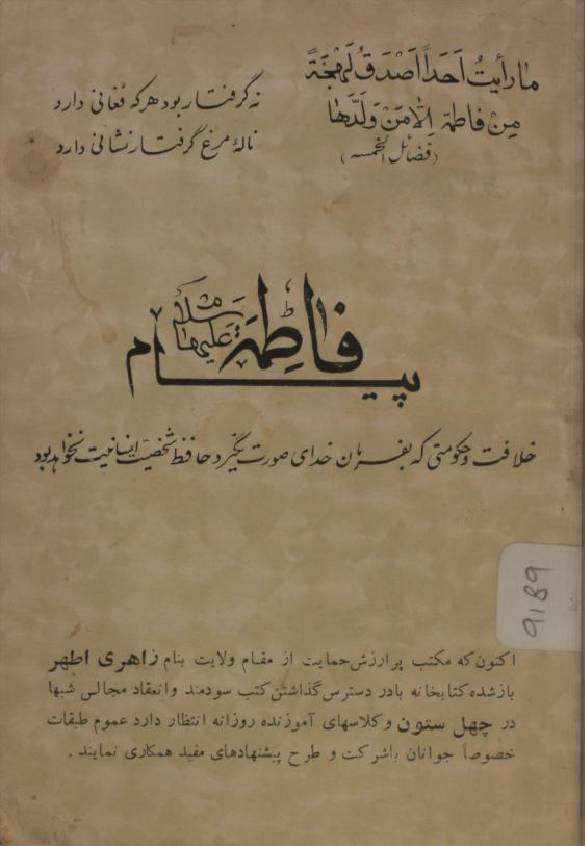 ما رأيت احداً اصدق لهجةً
من فاطمة الا من ولدها
(فضائل الخمسه)
نه گرفتار بود هر که فغانی دارد
نالهٔ مرغ گرفتار نشانی دارد
پیام فاطمة سلام علیها
خلافت و حکومتی که بفرمان خدای صورت نگیرد حافظ شخصیت انسانیت نخواهد بود
9189
اکنون که مکتب پر ارزش حمایت از مقام ولایت بنام زاهری اطهر
باز شده کتابخانه با در دسترس گذاشتن کتب سودمند و انعقاد مجالس شبها
در چهل ستون و کلاسهای آموزنده روزانه انتظار دارد عموم طبقات
خصوصاً جوانان با شرکت و طرح پیشنهادهای مفید همکاری نمایند .